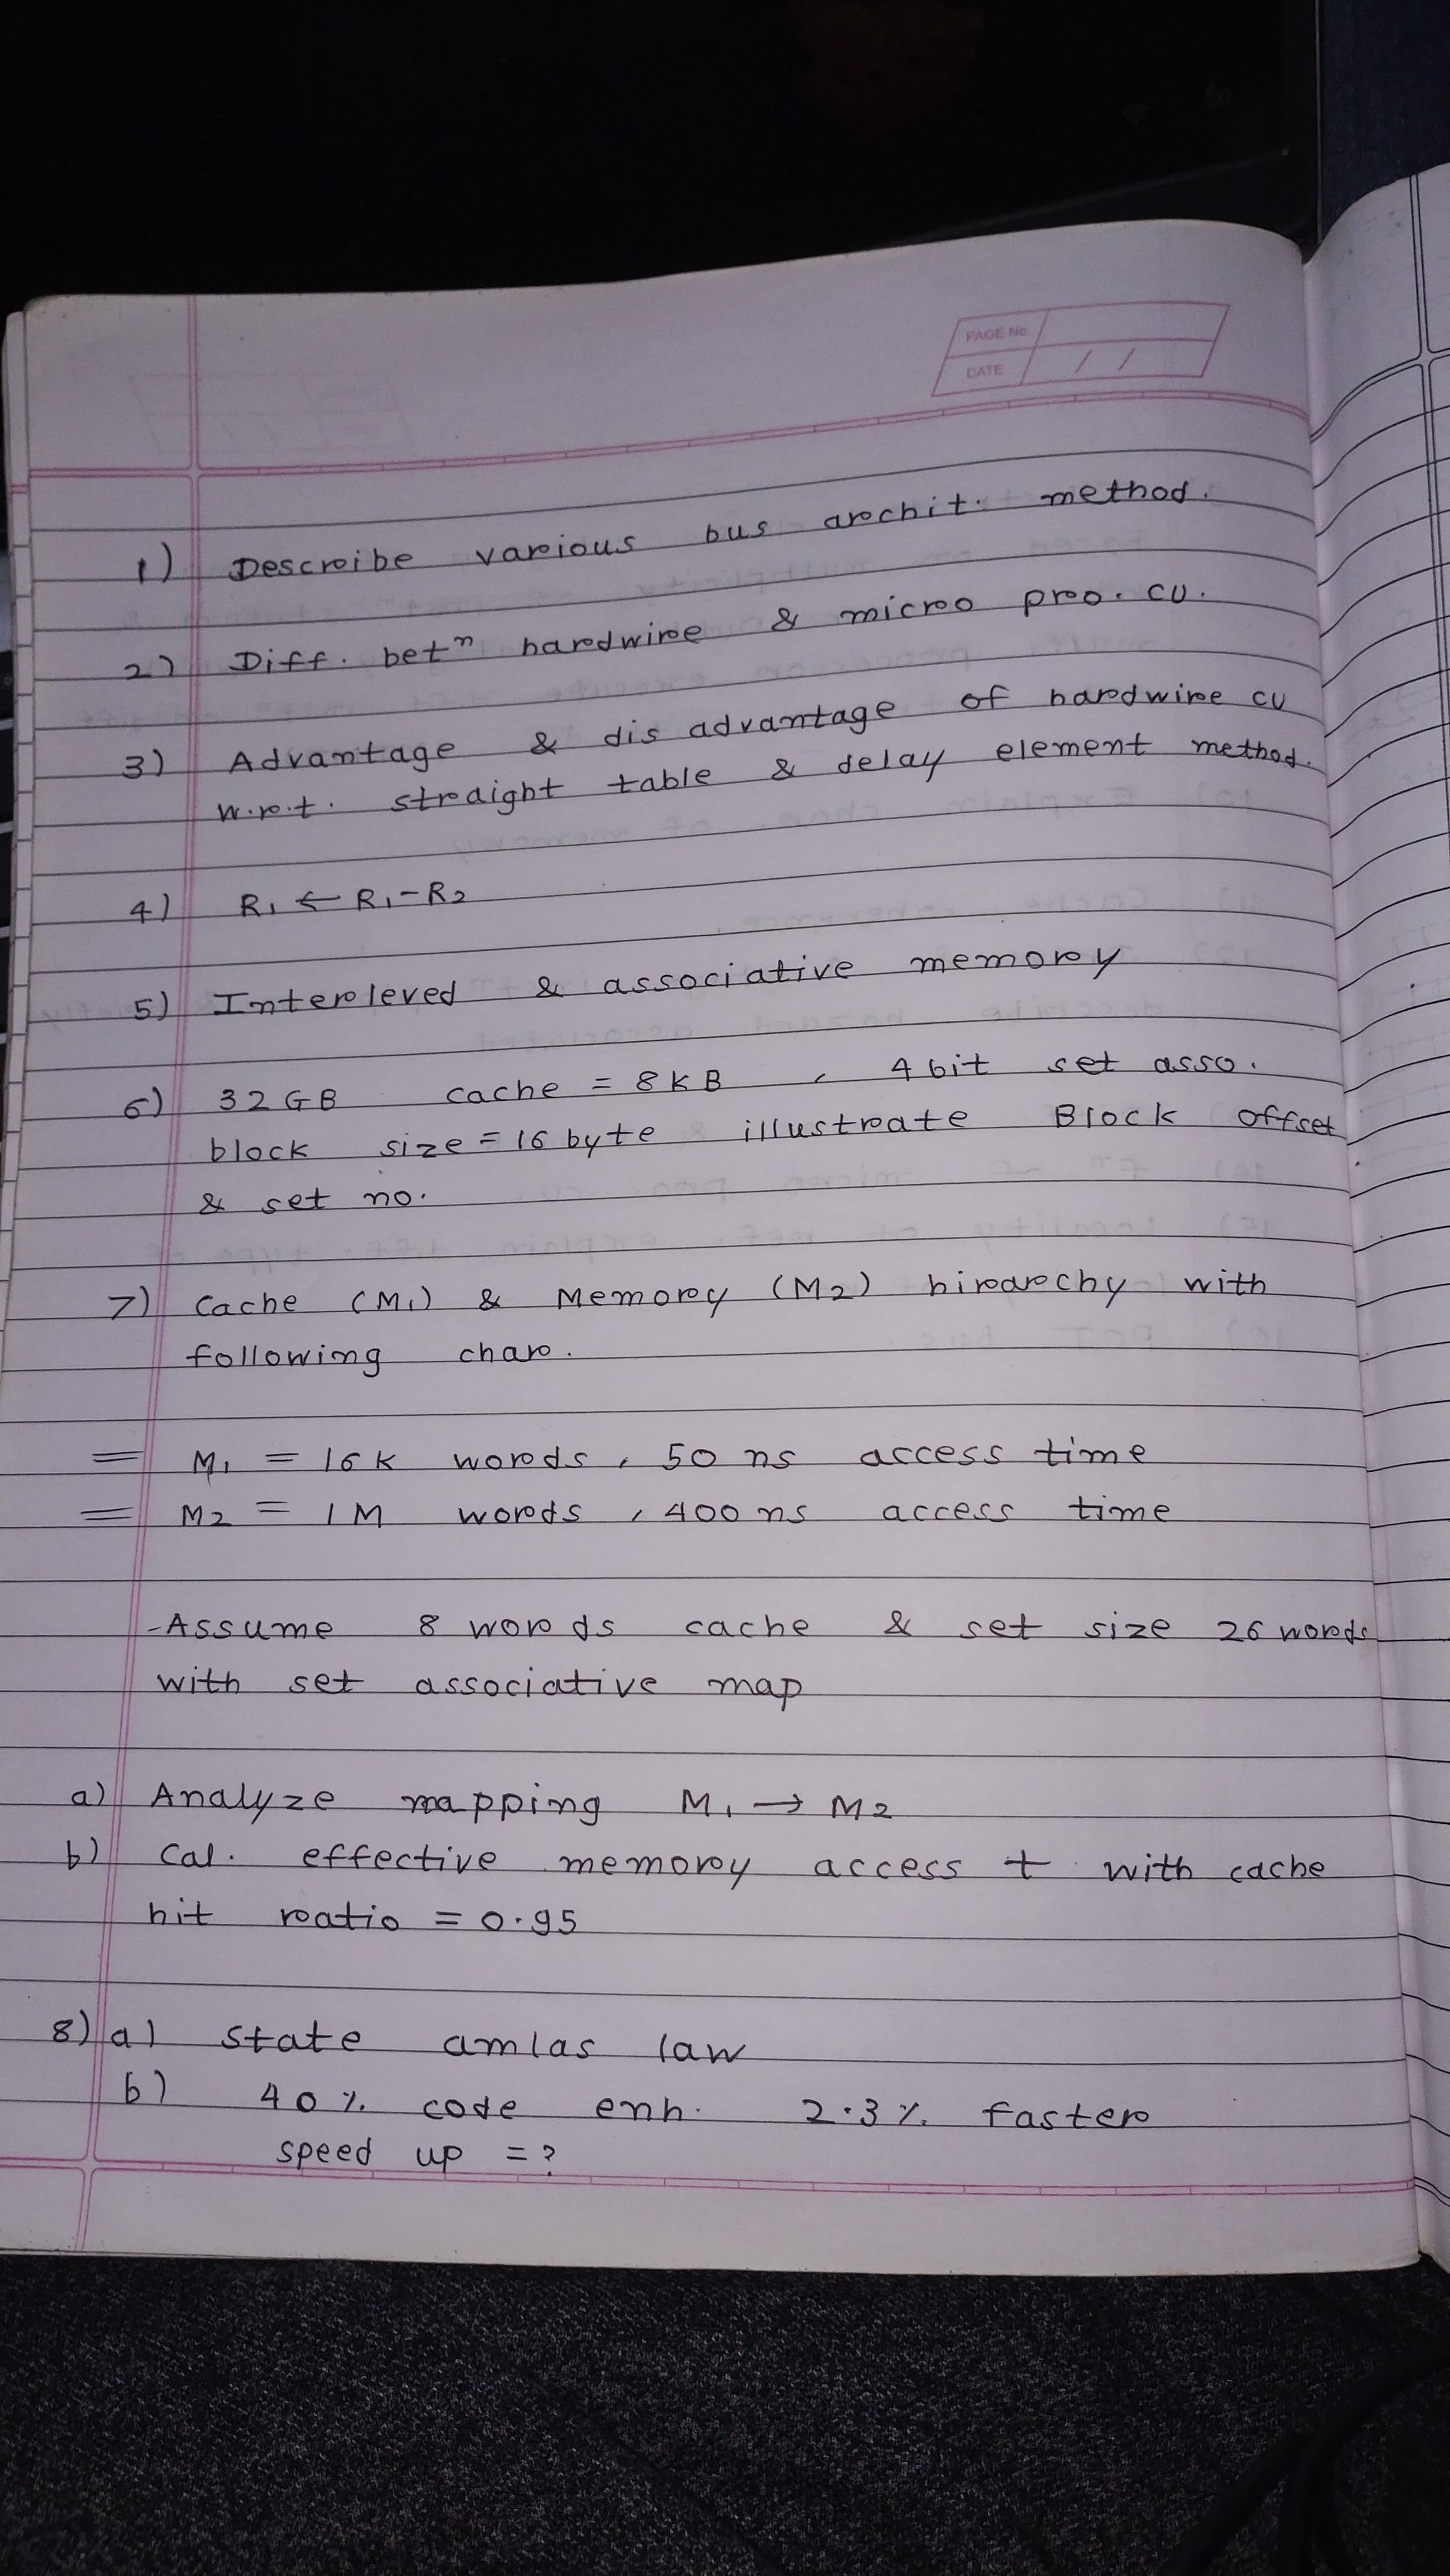 PAGE No.
DATE / /
1) Describe various bus archit. method.
2) Diff. betⁿ hardwire & micro pro. cu.
3) Advantage & dis advantage of hardwire cu
w.r.t. straight table & delay element method.
4) R₁ ← R₁-R₂
5) Interleved & associative memory
6) 32GB cache = 8KB , 4 bit set asso.
block size = 16 byte illustrate Block offset
& set no.
7) cache (M₁) & Memory (M2) hirarchy with
following char.
= M₁ = 16K words, 50 ns access time
= M2 = 1M words, 400 ns access time
-Assume 8 words cache & set size 26 words
with set associative map
a) Analyze mapping M₁ → M2
b) Cal. effective memory access t with cache
hit ratio = 0.95
8) a) state amlas law
b) 40% code enh. 2.3% faster
speed up = ?